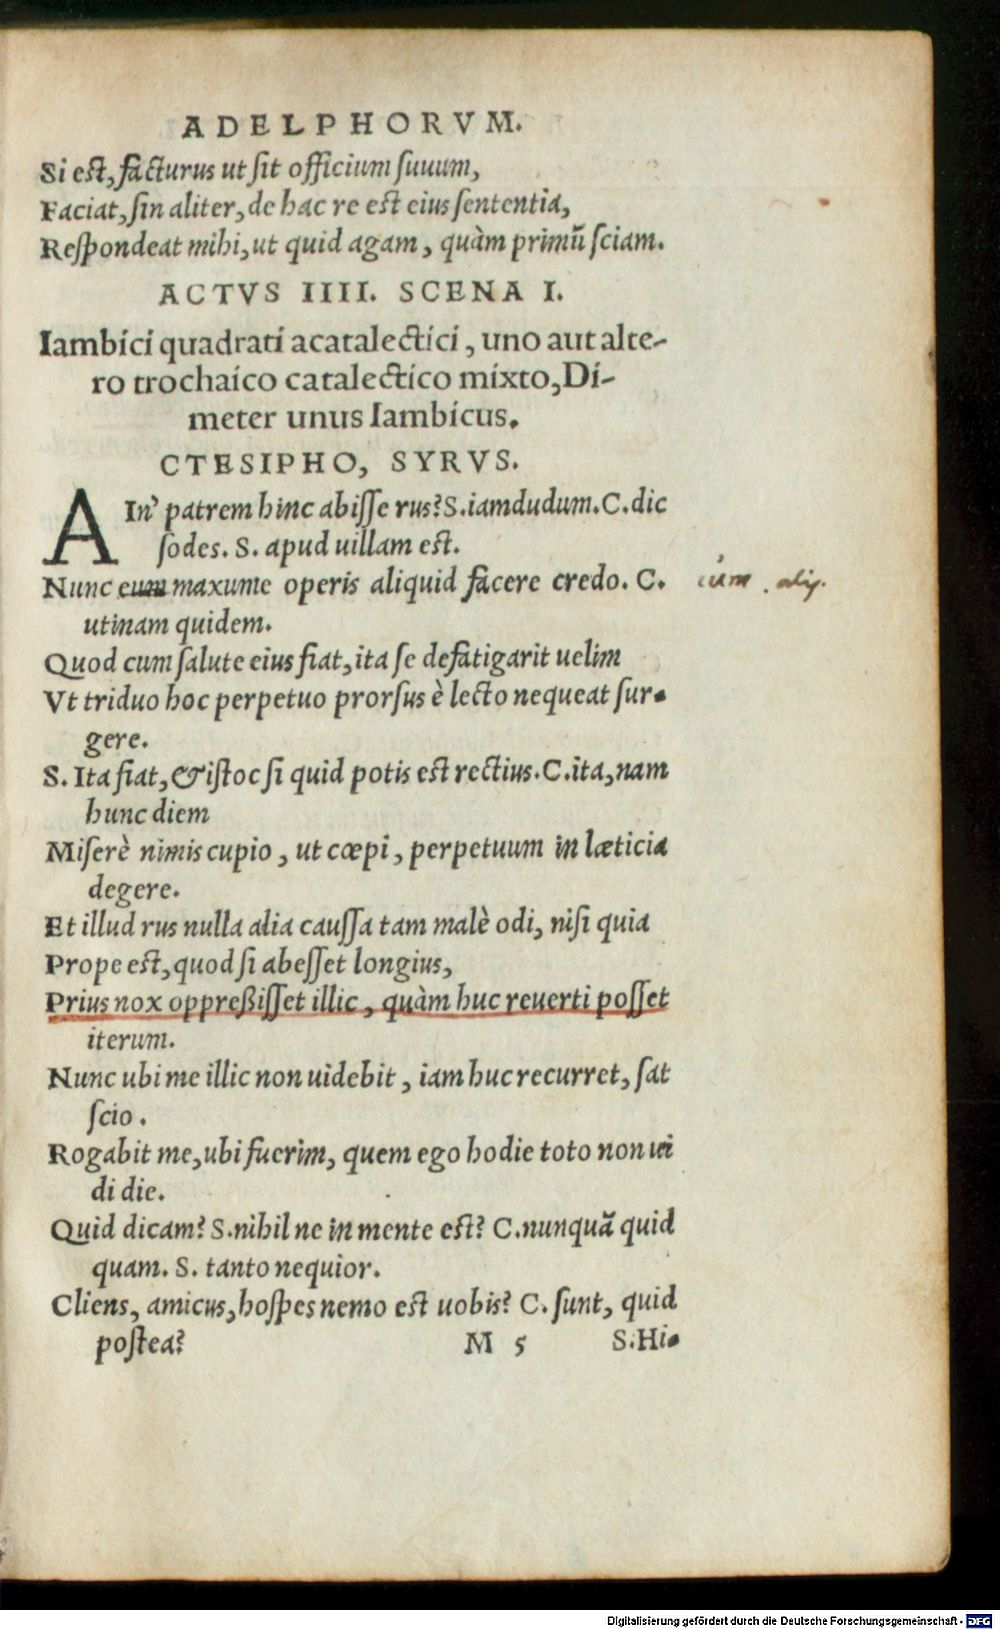 ADELPHORVM.
Si est, facturus ut sit officium suuum,
Faciat, sin aliter, de hac re est eius sententia,
Respondeat mihi, ut quid agam, quàm primũ sciam.
ACTVS IIII. SCENA I.
Iambici quadrati acatalectici, uno aut alte-
ro trochaico catalectico mixto, Di-
meter unus Iambicus.
CTESIPHO, SYRVS.
AIn' patrem hinc abisse rus? S. iamdudum. C. dic
sodes. S. apud uillam est.
Nunc eum maxume operis aliquid facere credo. C.
cum . alij.
utinam quidem.
Quod cum salute eius fiat, ita se defatigarit uelim
Vt triduo hoc perpetuo prorsus è lecto nequeat sur-
gere.
S. Ita fiat, & istoc si quid potis est rectius. C. ita, nam
hunc diem
Miserè nimis cupio, ut cœpi, perpetuum in læticia
degere.
Et illud rus nulla alia caussa tam malè odi, nisi quia
Prope est, quod si abesset longius,
Prius nox oppreßisset illic, quàm huc reuerti posset
iterum.
Nunc ubi me illic non uidebit, iam huc recurret, sat
scio.
Rogabit me, ubi fuerim, quem ego hodie toto non ui
di die.
Quid dicam? S. nihil ne in mente est? C. nunquã quid
quam. S. tanto nequior.
Cliens, amicus, hospes nemo est uobis? C. sunt, quid
postea? M 5 S. Hi-
Digitalisierung gefördert durch die Deutsche Forschungsgemeinschaft - DFG